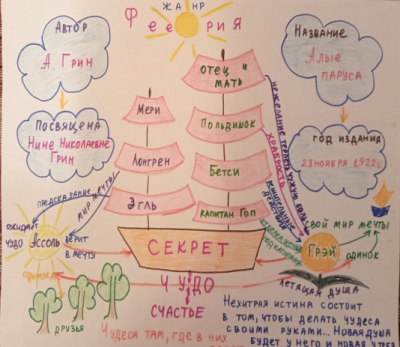 ЖАНР
Феерия
Автор
А. Грин
Посвящена
Нине Николаевне
Грин
Название
Алые
паруса
год издания
23 ноября 1922г.
Мери
Лонгрен
Эгль
отец и
мать
Польдишок
Бетси
капитан Гоп
СЕКРЕТ
предсказание
мир мечты
ожидает
чудо
Ассоль
верит
в мечту
одинока
друзья
нежелание
чужую
храбрость
действия
свой мир мечты
Грэй
одинок
летящая душа
ЧУДО
СЧАСТЬЕ
Нехитрая истина состоит
в том, чтобы делать чудеса
своими руками... Новая душа
будет у него и новая у тебя
Чудеса там, где в них